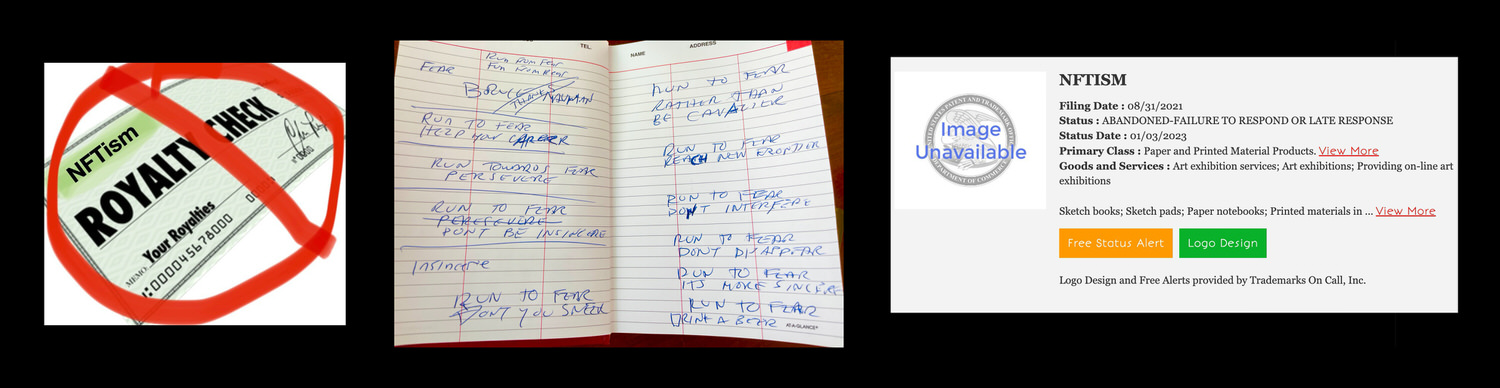 NFTism
ROYALTY CHECK
n°0600
MEMO: Your Royalties
⑆:000045678000 0000
TEL.
RUN FROM FEAR
FUN FROM REAR
FEAR
BRUCE NAUMAN
THANKS
RUN TO FEAR
HELP YOUR CAREER
RUN TOWARDS FEAR
PERSEVERE
RUN TO FEAR
PERESEVERE
DONT BE INSINCERE
INSINCERE
RUN TO FEAR
DONT YOU SNEER
NAME
ADDRESS
RUN TO FEAR
RATHER THAN
BE CAVALIER
RUN TO FEAR
REACH NEW FRONTIER
RUN TO FEAR
DONT INTERFERE
RUN TO FEAR
DONT DISAPPEAR
RUN TO FEAR
ITS MORE SINCERE
RUN TO FEAR
DRINK A BEER
AT-A-GLANCE®
UNITED STATES PATENT AND TRADEMARK OFFICE
DEPARTMENT OF COMMERCE
Image
Unavailable
NFTISM
Filing Date : 08/31/2021
Status : ABANDONED-FAILURE TO RESPOND OR LATE RESPONSE
Status Date : 01/03/2023
Primary Class : Paper and Printed Material Products. View More
Goods and Services : Art exhibition services; Art exhibitions; Providing on-line art
exhibitions
Sketch books; Sketch pads; Paper notebooks; Printed materials in ... View More
Free Status Alert
Logo Design
Logo Design and Free Alerts provided by Trademarks On Call, Inc.